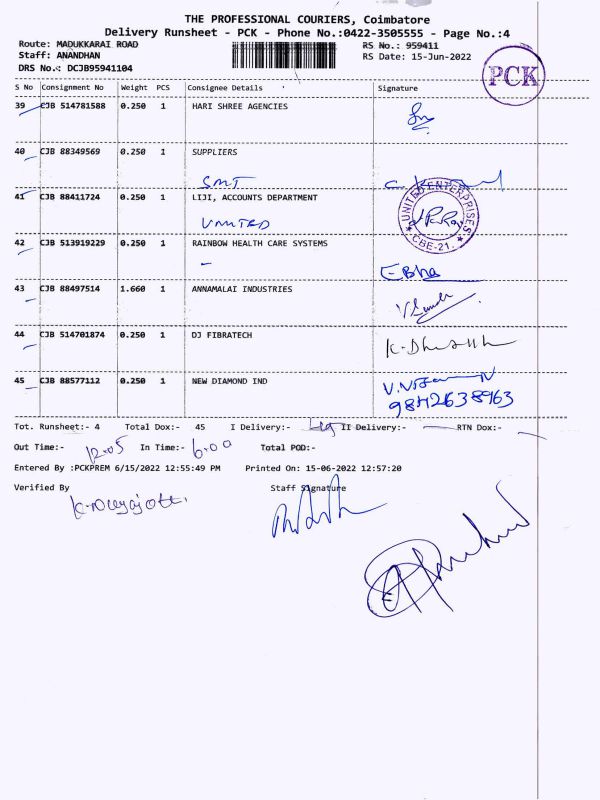 THE PROFESSIONAL COURIERS, Coimbatore
Delivery Runsheet - PCK - Phone No.:0422-3505555 - Page No.:4
Route: MADUKKARAI ROAD RS No.: 959411
Staff: ANANDHAN RS Date: 15-Jun-2022
DRS No.: DCJB95941104
PCK
S No Consignment No Weight PCS Consignee Details Signature
39 CJB 514781588 0.250 1 HARI SHREE AGENCIES
40 CJB 88349569 0.250 1 SUPPLIERS
SMT
41 CJB 88411724 0.250 1 LIJI, ACCOUNTS DEPARTMENT
UNITED
UNITED ENTERPRISES
CBE-21.
42 CJB 513919229 0.250 1 RAINBOW HEALTH CARE SYSTEMS
43 CJB 88497514 1.660 1 ANNAMALAI INDUSTRIES
44 CJB 514701874 0.250 1 DJ FIBRATECH
45 CJB 88577112 0.250 1 NEW DIAMOND IND
9842638963
Tot. Runsheet:- 4 Total Dox:- 45 I Delivery:- II Delivery:- RTN Dox:-
Out Time:- 12.05 In Time:- 6.00 Total POD:-
Entered By :PCKPREM 6/15/2022 12:55:49 PM Printed On: 15-06-2022 12:57:20
Verified By Staff Signature